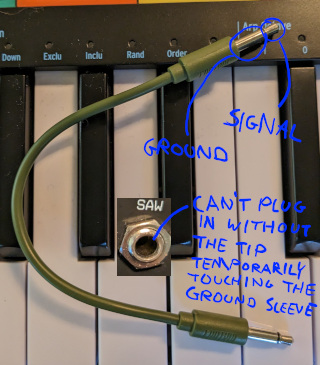 Down Exclu Inclu Rand Order
0
SIGNAL
GROUND
SAW
CAN'T PLUG
IN WITHOUT
THE TIP
TEMPORARILY
TOUCHING THE
GROUND SLEEVE